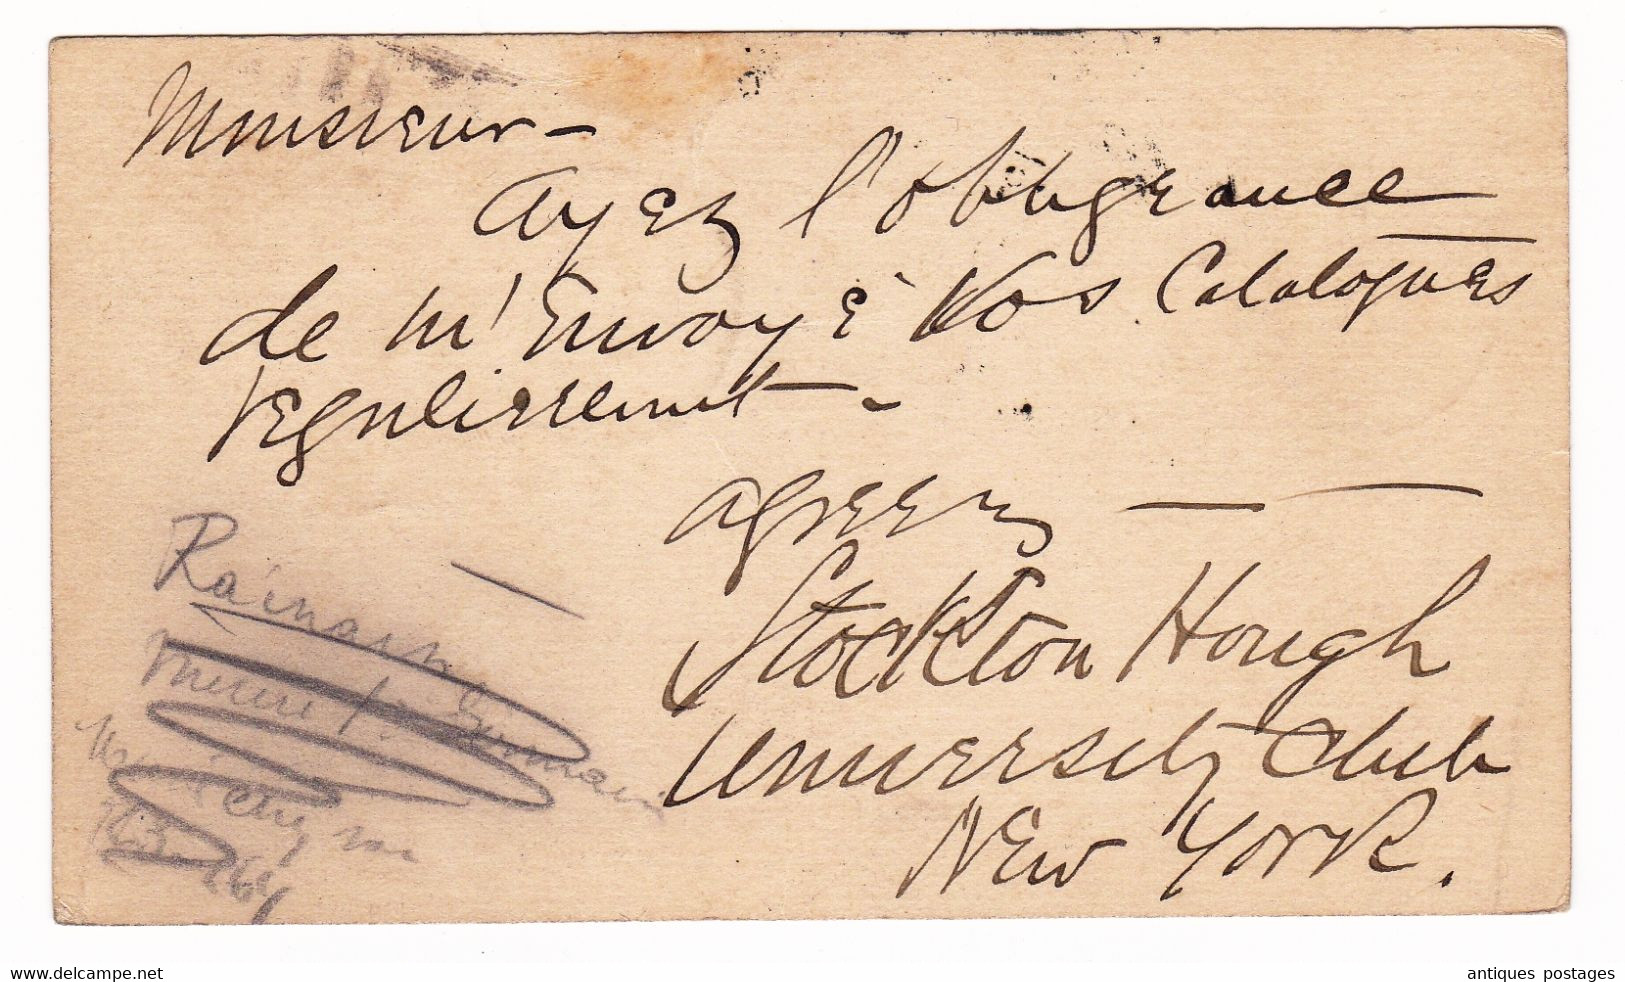 Monsieur -
Ayez l'obligeance
de m'Envoyé Vos Catalogues
regulierement -
agreez — —
Stockton Hough
University Club
New York.
delcampe.net
antiques postages